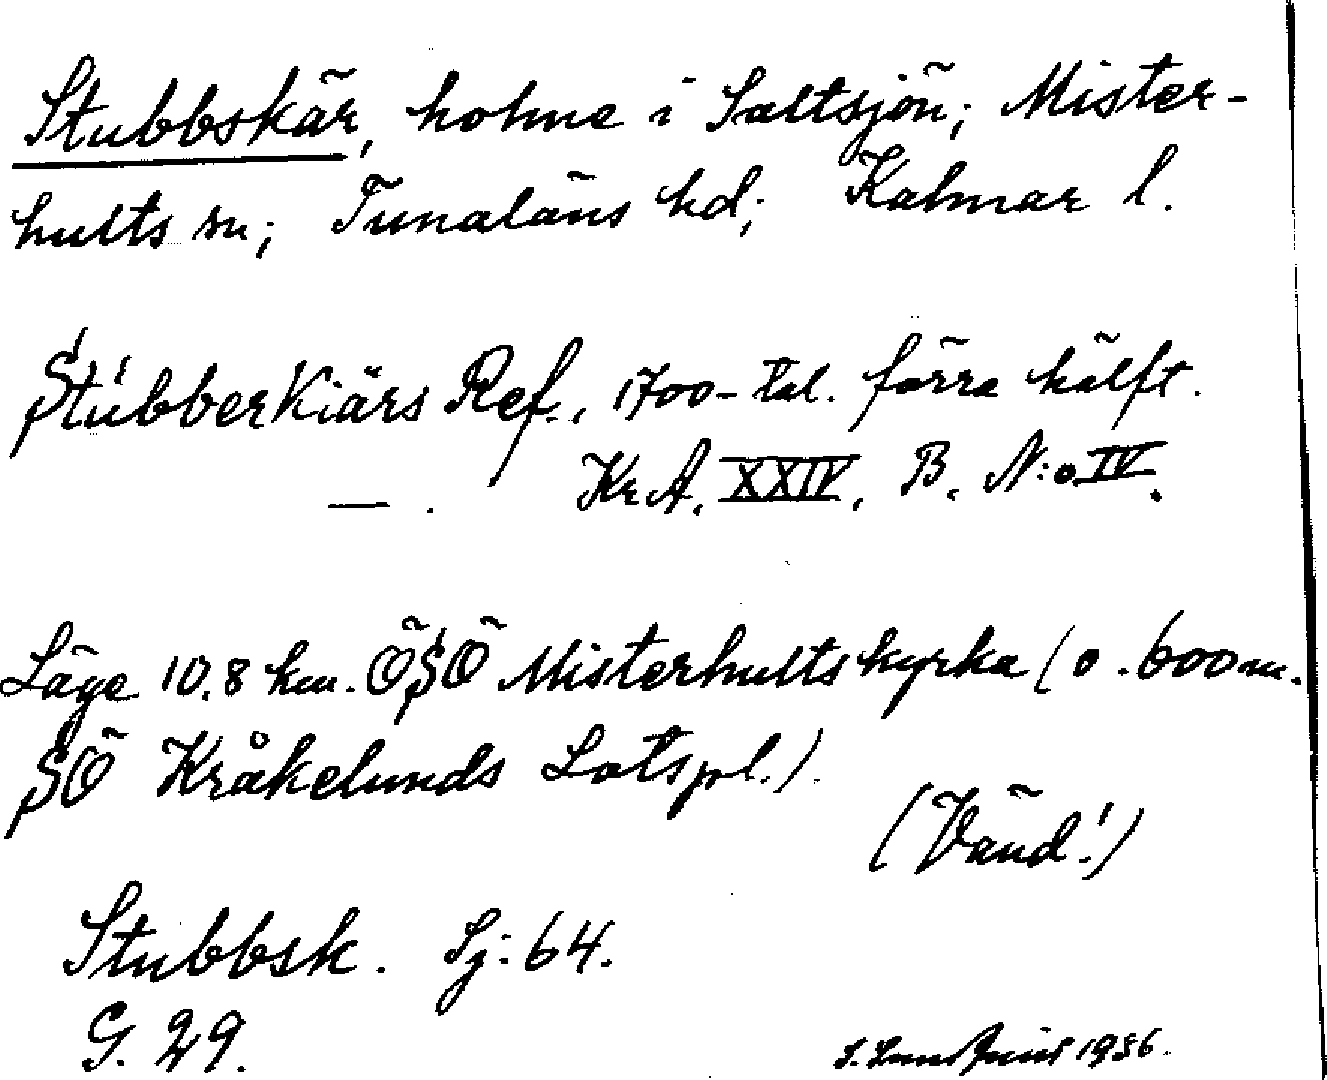 Stubbskär, holme i Saltsjön; Mister-
hults sn; Tunaläns hd; Kalmar l.
StubberKiärs Ref., 1700-tal. förra hälft.
— . Kr.A. XXIV. B. N:o IV.
Läge 10.8 km. ÖSÖ Misterhults kyrka (o. 600 m.
SÖ Kråkelunds Lotspl.).
(Vänd!)
Stubbsk. Sj: 64.
G. 29.
1936.